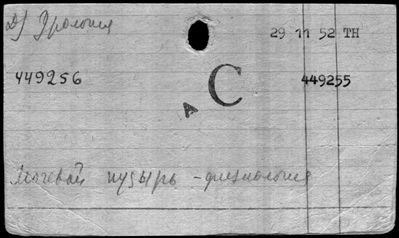 Д) Урология
29 11 52 ТН
449256
449255
C
A
Мочевой пузырь - физиология